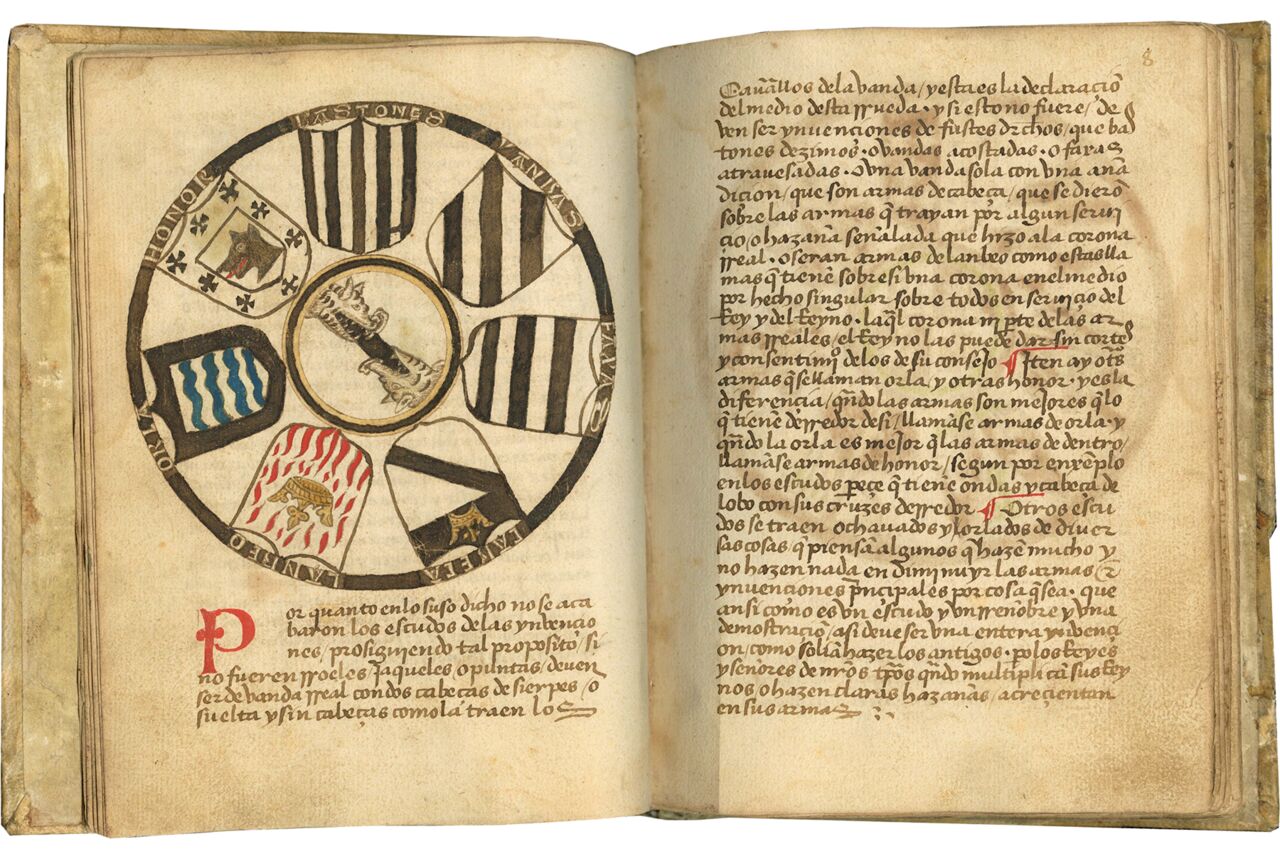 BASTONES
VANDAS
FAXAS
LANBEO
ORLA
HONOR
Por quanto enlo suso dicho no se aca
baron los escudos delas ynvencio
nes, prosiguiendo tal proposito, si
no fueren rroeles Jaqueles, o puntas, deven
ser de vanda rreal con dos cabeças de sierpes, o
suelta y sin cabeças como la traen los
8
Cavãllos dela vanda, y esta es la declaraçiõ
del medio desta rrueda · y si esto no fuere, de
ven ser ynvenciones de fustes drchos, que ba
tones dezimos · o vandas acostadas · o faxas
atravesadas · o vna vanda sola con vna aña
dicion, que son armas de cabeça, que se dierõ
sobre las armas q̃ trayan por algun serui
cio, o hazaña señalada que hizo ala corona
rreal · o seran armas de lanbeo como estas lla
mas q̃ tienẽ sobre si vna corona enel medio
por hecho singular sobre todos en seruiçio del
Rey y del Reyno · la q̃l corona ni pte de las ar
mas rreales, el Rey no las puede dar sin cortes
y consentimiº de los de su consejo ¶ Iten ay otrs
armas q̃ se llaman orla, y otras honor · y es la
diferençia, qñdo las armas son mejores q̃ lo
q̃ tienẽ derredor de si, llamãse armas de orla · y
qñdo la orla es mejor q̃ las armas de dentro,
llamãse armas de honor, segun por enxẽplo
enlos escudos pareçe q̃ tienẽ ondas y cabeça de
lobo con sus cruzes derredor ¶ Otros escu
dos se traen ochavados y orlados de diver
sas cosas q̃ piensã algunos q̃ hazẽ mucho y
no hazen nada en diminuyr las armas &
ynvenciones prĩncipales por cosa q̃ sea · que
ansi como es vn escudo y vn rrenõbre y vna
demostraciõ, asi deve ser vna entera ynvenci
on, como soliã hazer los antigos · po los Reyes
y señores de nrõs tpõs qñdo multiplicã sus Rey
nos, o hazen claras hazañas, acreçientan
en sus armas